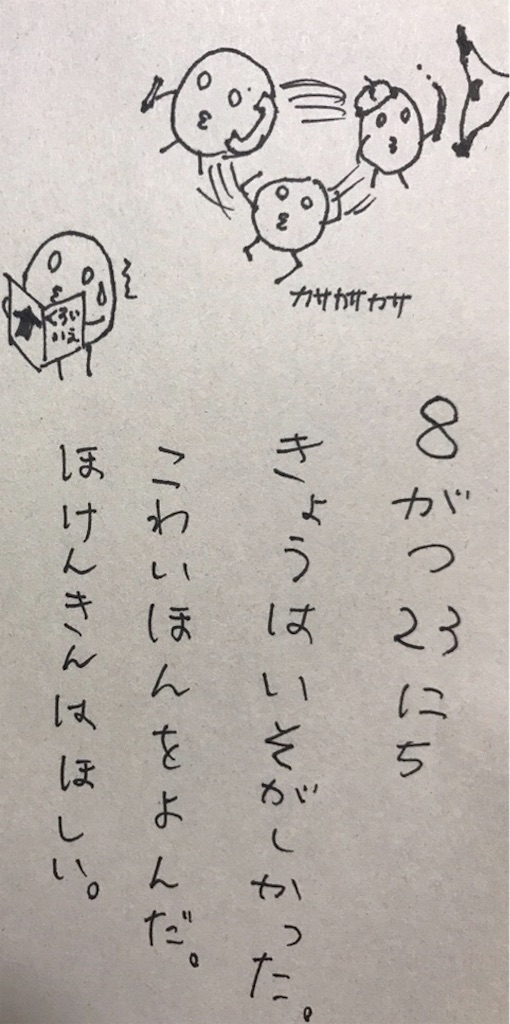 カサカサカサ
くろい
いえ
8がつ23にち
きょうはいそがしかった。
こわいほんをよんだ。
ほけんきんはほしい。